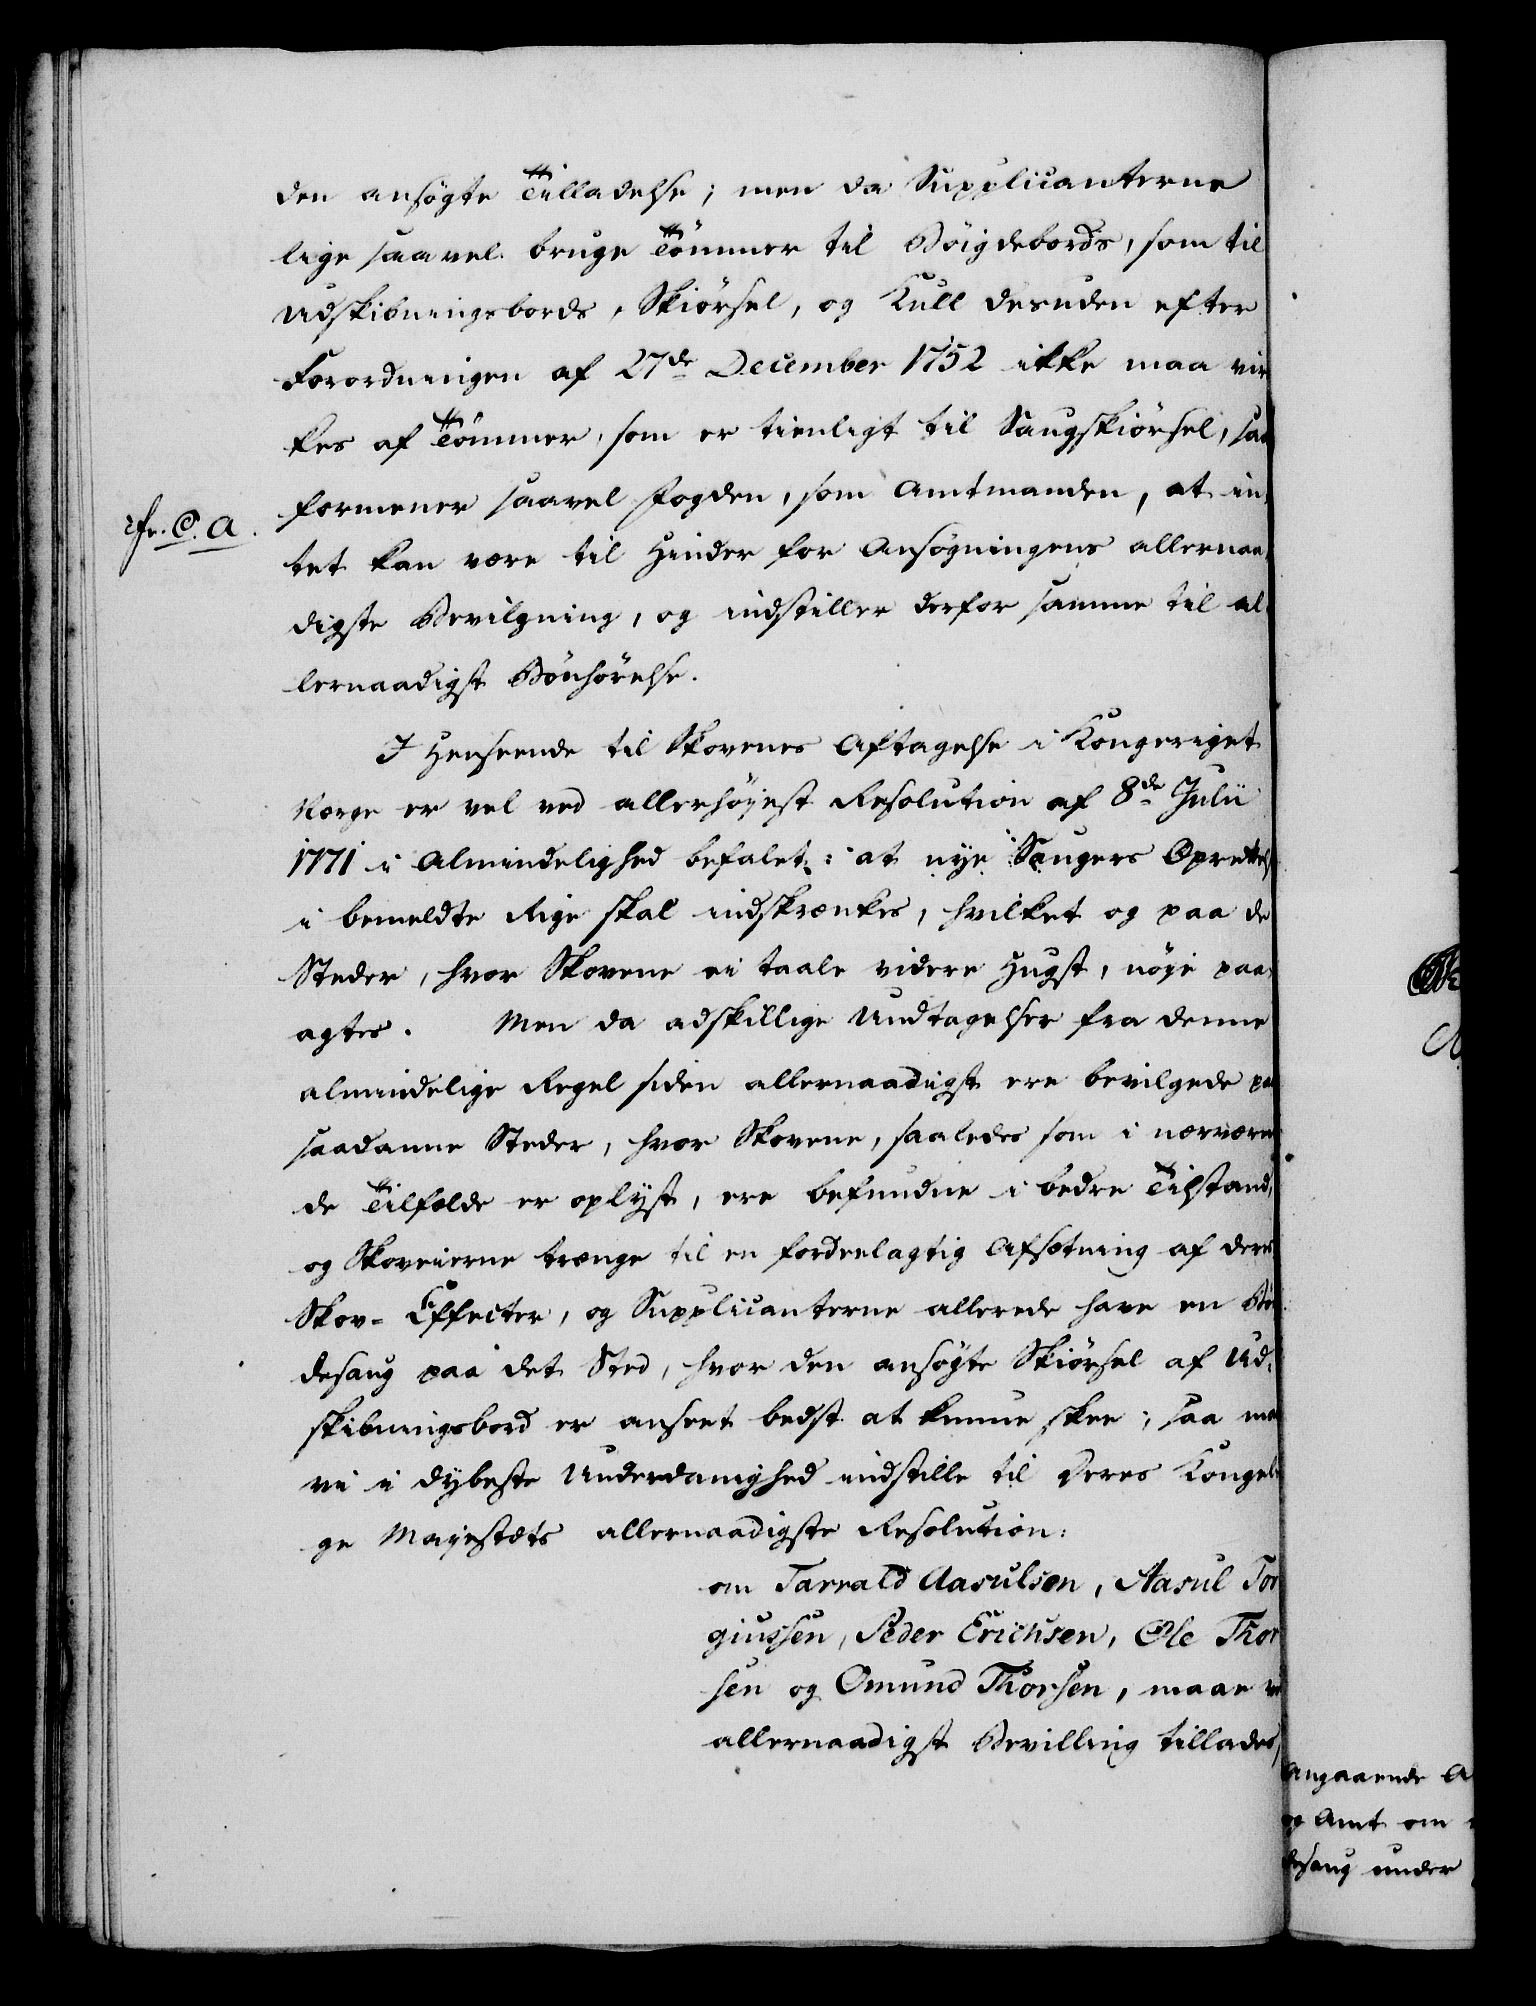 den ansøgte Tilladelse; men da Supplicanterne
lige saavel bruge Tömmer til Böigdebords, som til
Udskibningsbords, Skiörsel, og Kull desuden efter
Forordningen af 27de December 1752 ikke maa vir
kes af Tömmer, som er tienligt til Saugskiörsel, saa
cfr. C. A. formener saavel Fogden, som Amtmanden, at in-
tet kan være til Hinder for Ansøgningens allernaa-
digste Bevilgning, og indstiller derfor samme til al-
lernaadigst Bönhörelse.
I Henseende til Skovenes Aftagelse i Kongeriget
Norge er vel ved allerhöyest Resolution af 8de Julii
1771 i Almindelighed befalet: at nye Saugers Oprettels
i bemeldte Rige skal indskrænkes, hvilket og paa de
Steder, hvor Skovene ei taale videre Hugst, nöye paa-
agtes. Men da adskillige Undtagelser fra denne
almindelige Regel siden allernaadigst ere bevilgede paa
saadanne Steder, hvor Skovene, saaledes som i nærværen
de Tilfælde er oplyst, ere befundne i bedre Tilstand,
og Skoveierne trænge til en fordeelagtig Afsætning af deres
Skov-Effecter, og Supplicanterne allerede have en Böi
desaug paa det Sted, hvor den ansögte Skiörsel af Ud-
skibningsbord er anseet bedst at kunne skee; saa maa
vi i dybeste Underdanighed indstille til Deres Kongeli
ge Mayestæts allernaadigste Resolution:
om Tarrald Aasulsen, Aasul Tor
giussen, Peder Erichsen, Ole Thor
sen og Omund Thorsen, maae ved
allernaadigst Bevilling tillades,
Angaaende A
og Amt om
desaug under